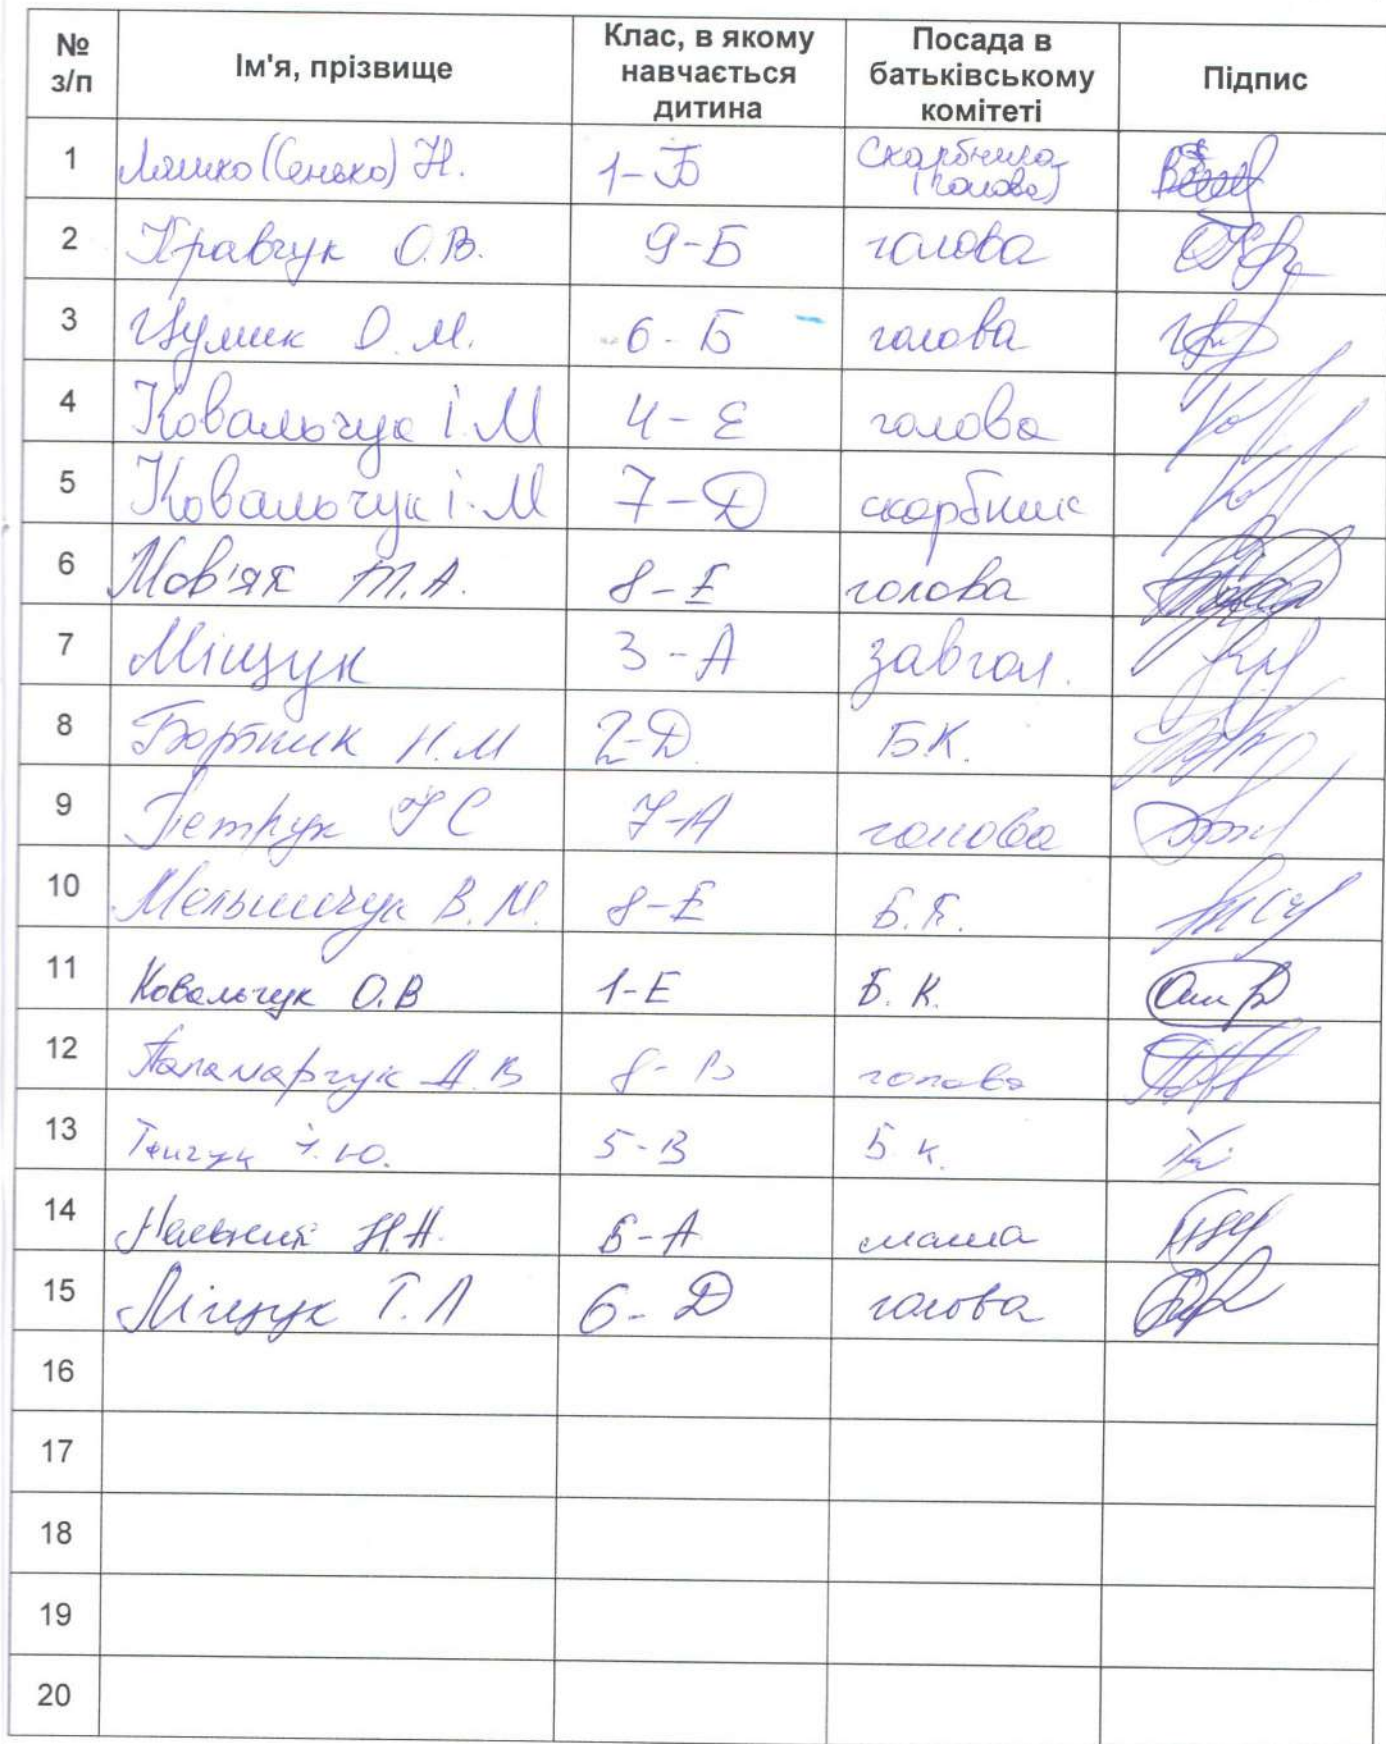 № з/п Ім'я, прізвище Клас, в якому навчається дитина Посада в батьківському комітеті Підпис
1 Ляшко (Сенько) Н. 1-Б Скарбника (голова)
2 Кравчук О.В. 9-Б голова
3 Цумик О.М. 6-Б голова
4 Ковальчук І.М 4-Е голова
5 Ковальчук І.М 7-Д скарбник
6 Мов'як Т.А. 8-Е голова
7 Міщук 3-А завгол.
8 Бортник Н.М 2-Д. Б.К.
9 Петрук 7-А голова
10 Мельничук В.М. 8-Е Б.К.
11 Ковальчук О.В 1-Е Б.К.
12 Паламарчук А.В 8-В голова
13 5-В Б.К.
14 Н.А. 5-А мама
15 Міщук Т.Л 6-Д голова
16
17
18
19
20